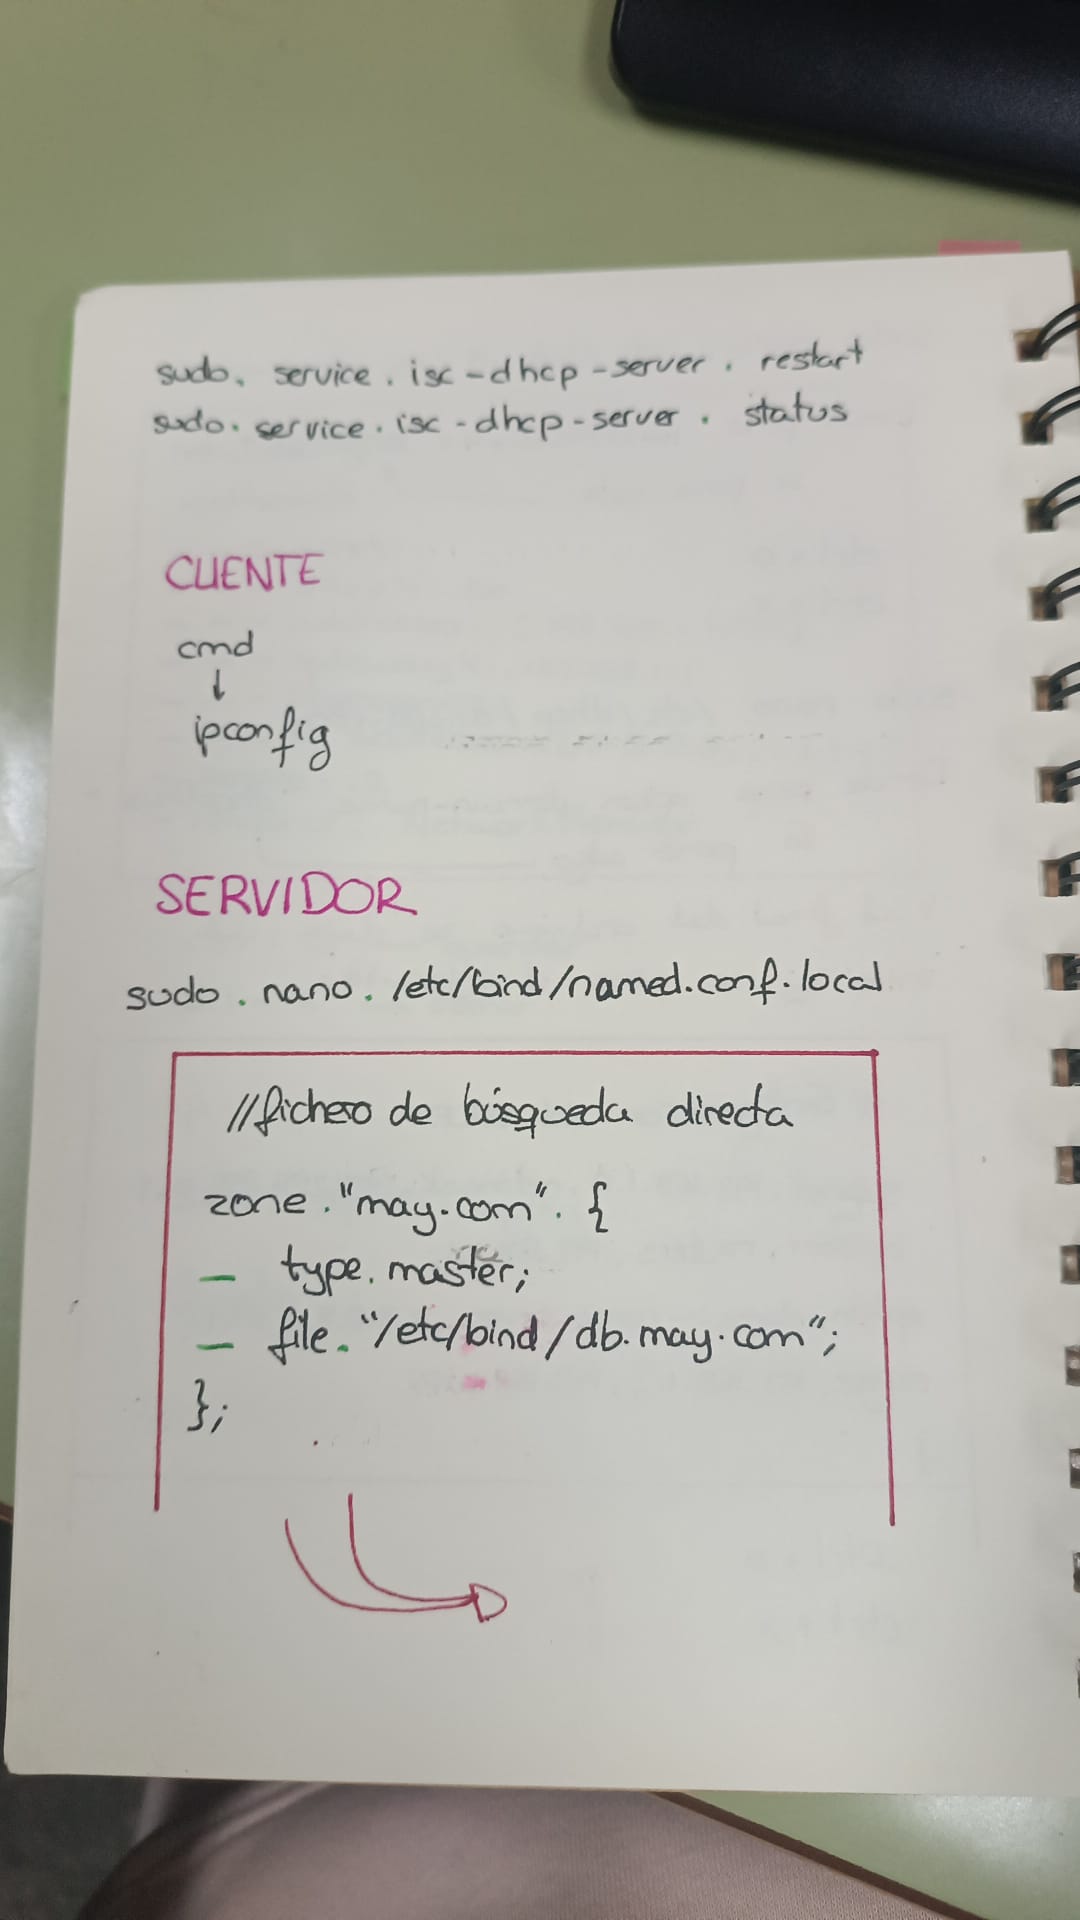 sudo. service. isc-dhcp-server. restart
sudo. service. isc-dhcp-server. status
CLIENTE
cmd
↓
ipconfig
SERVIDOR
sudo. nano. /etc/bind/named.conf.local
//fichero de búsqueda directa
zone."may.com". {
— type. master;
— file. "/etc/bind/db.may.com";
};